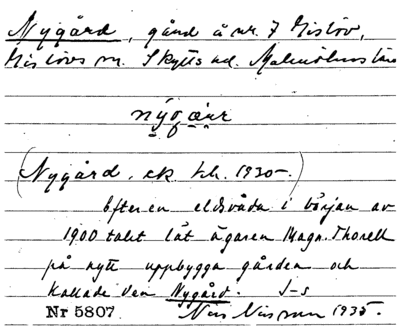 Nygård, gård å nr. 7 Mistöv,
s sn. Skytts hd. Malmöhus län
nýgæ̂r
(Nygård, ek kb. 1930-)
Efter en eldsvåda i början av
1900 talet lät ägaren Magn. Thorell
på nytt uppbygga gården och
kallade den Nygård. J-s
Nr 5807 Nils Nilsson 1935.